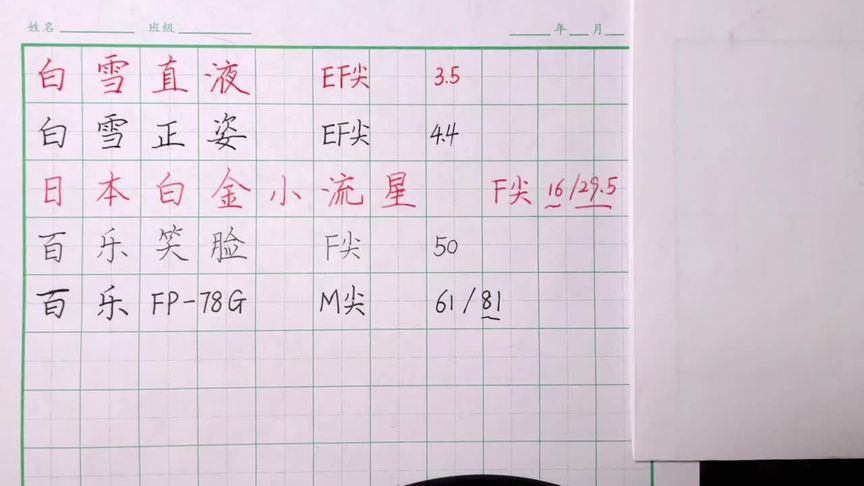 姓名 班级 年 月
白雪直液 EF尖 3.5
白雪正姿 EF尖 4.4
日本白金小流星 F尖 16/29.5
百乐笑脸 F尖 50
百乐FP-78G M尖 61/81